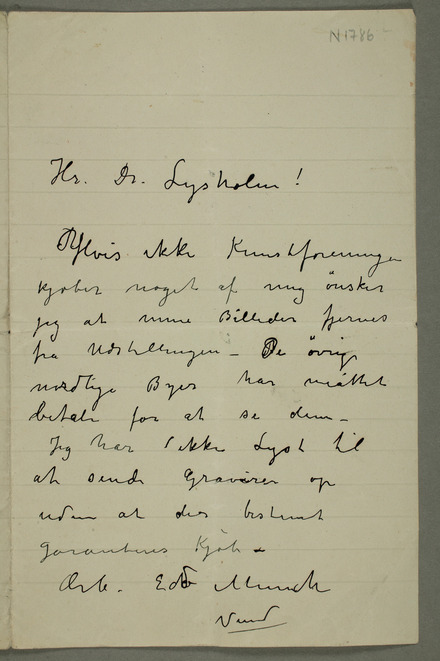 N 1786
Hr. Dr. Lysholm!
Hvis ikke Kunstforeningen
kjøber noget af mig ønsker
jeg at mine Billeder fjernes
fra Udstillingen – De øvrige
nordlige Byer har måttet
betale for at se dem –
Jeg har ikke Lyst til
at sende Gravurer op
uden at der bestemt
garanteres Kjøb –
Ærb. Edv Munch
Vend